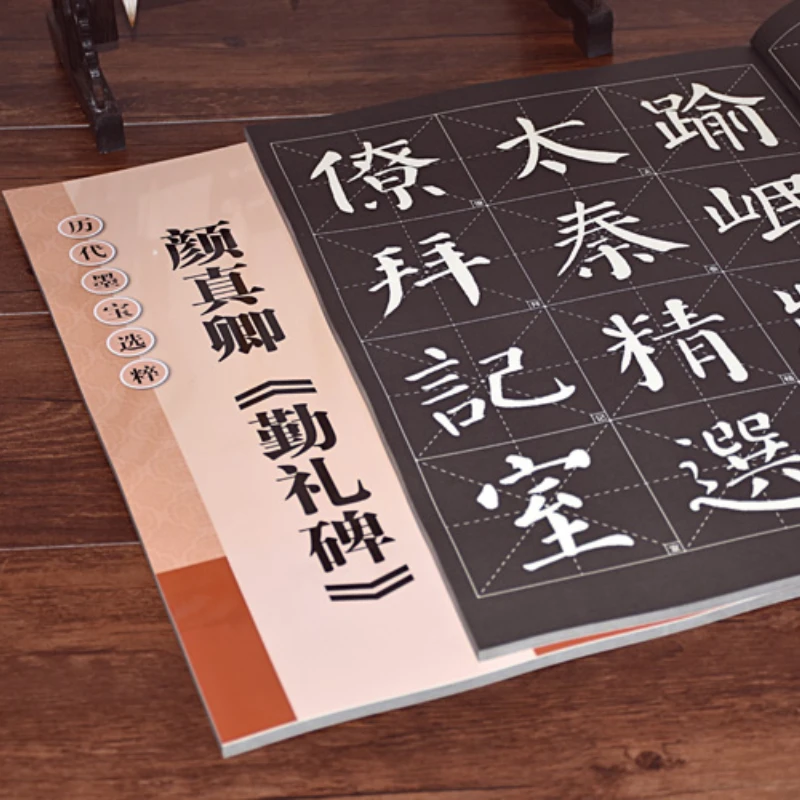 历代墨宝选粹
颜真卿《勤礼碑》
踰岷
太秦精選
僚拜記室